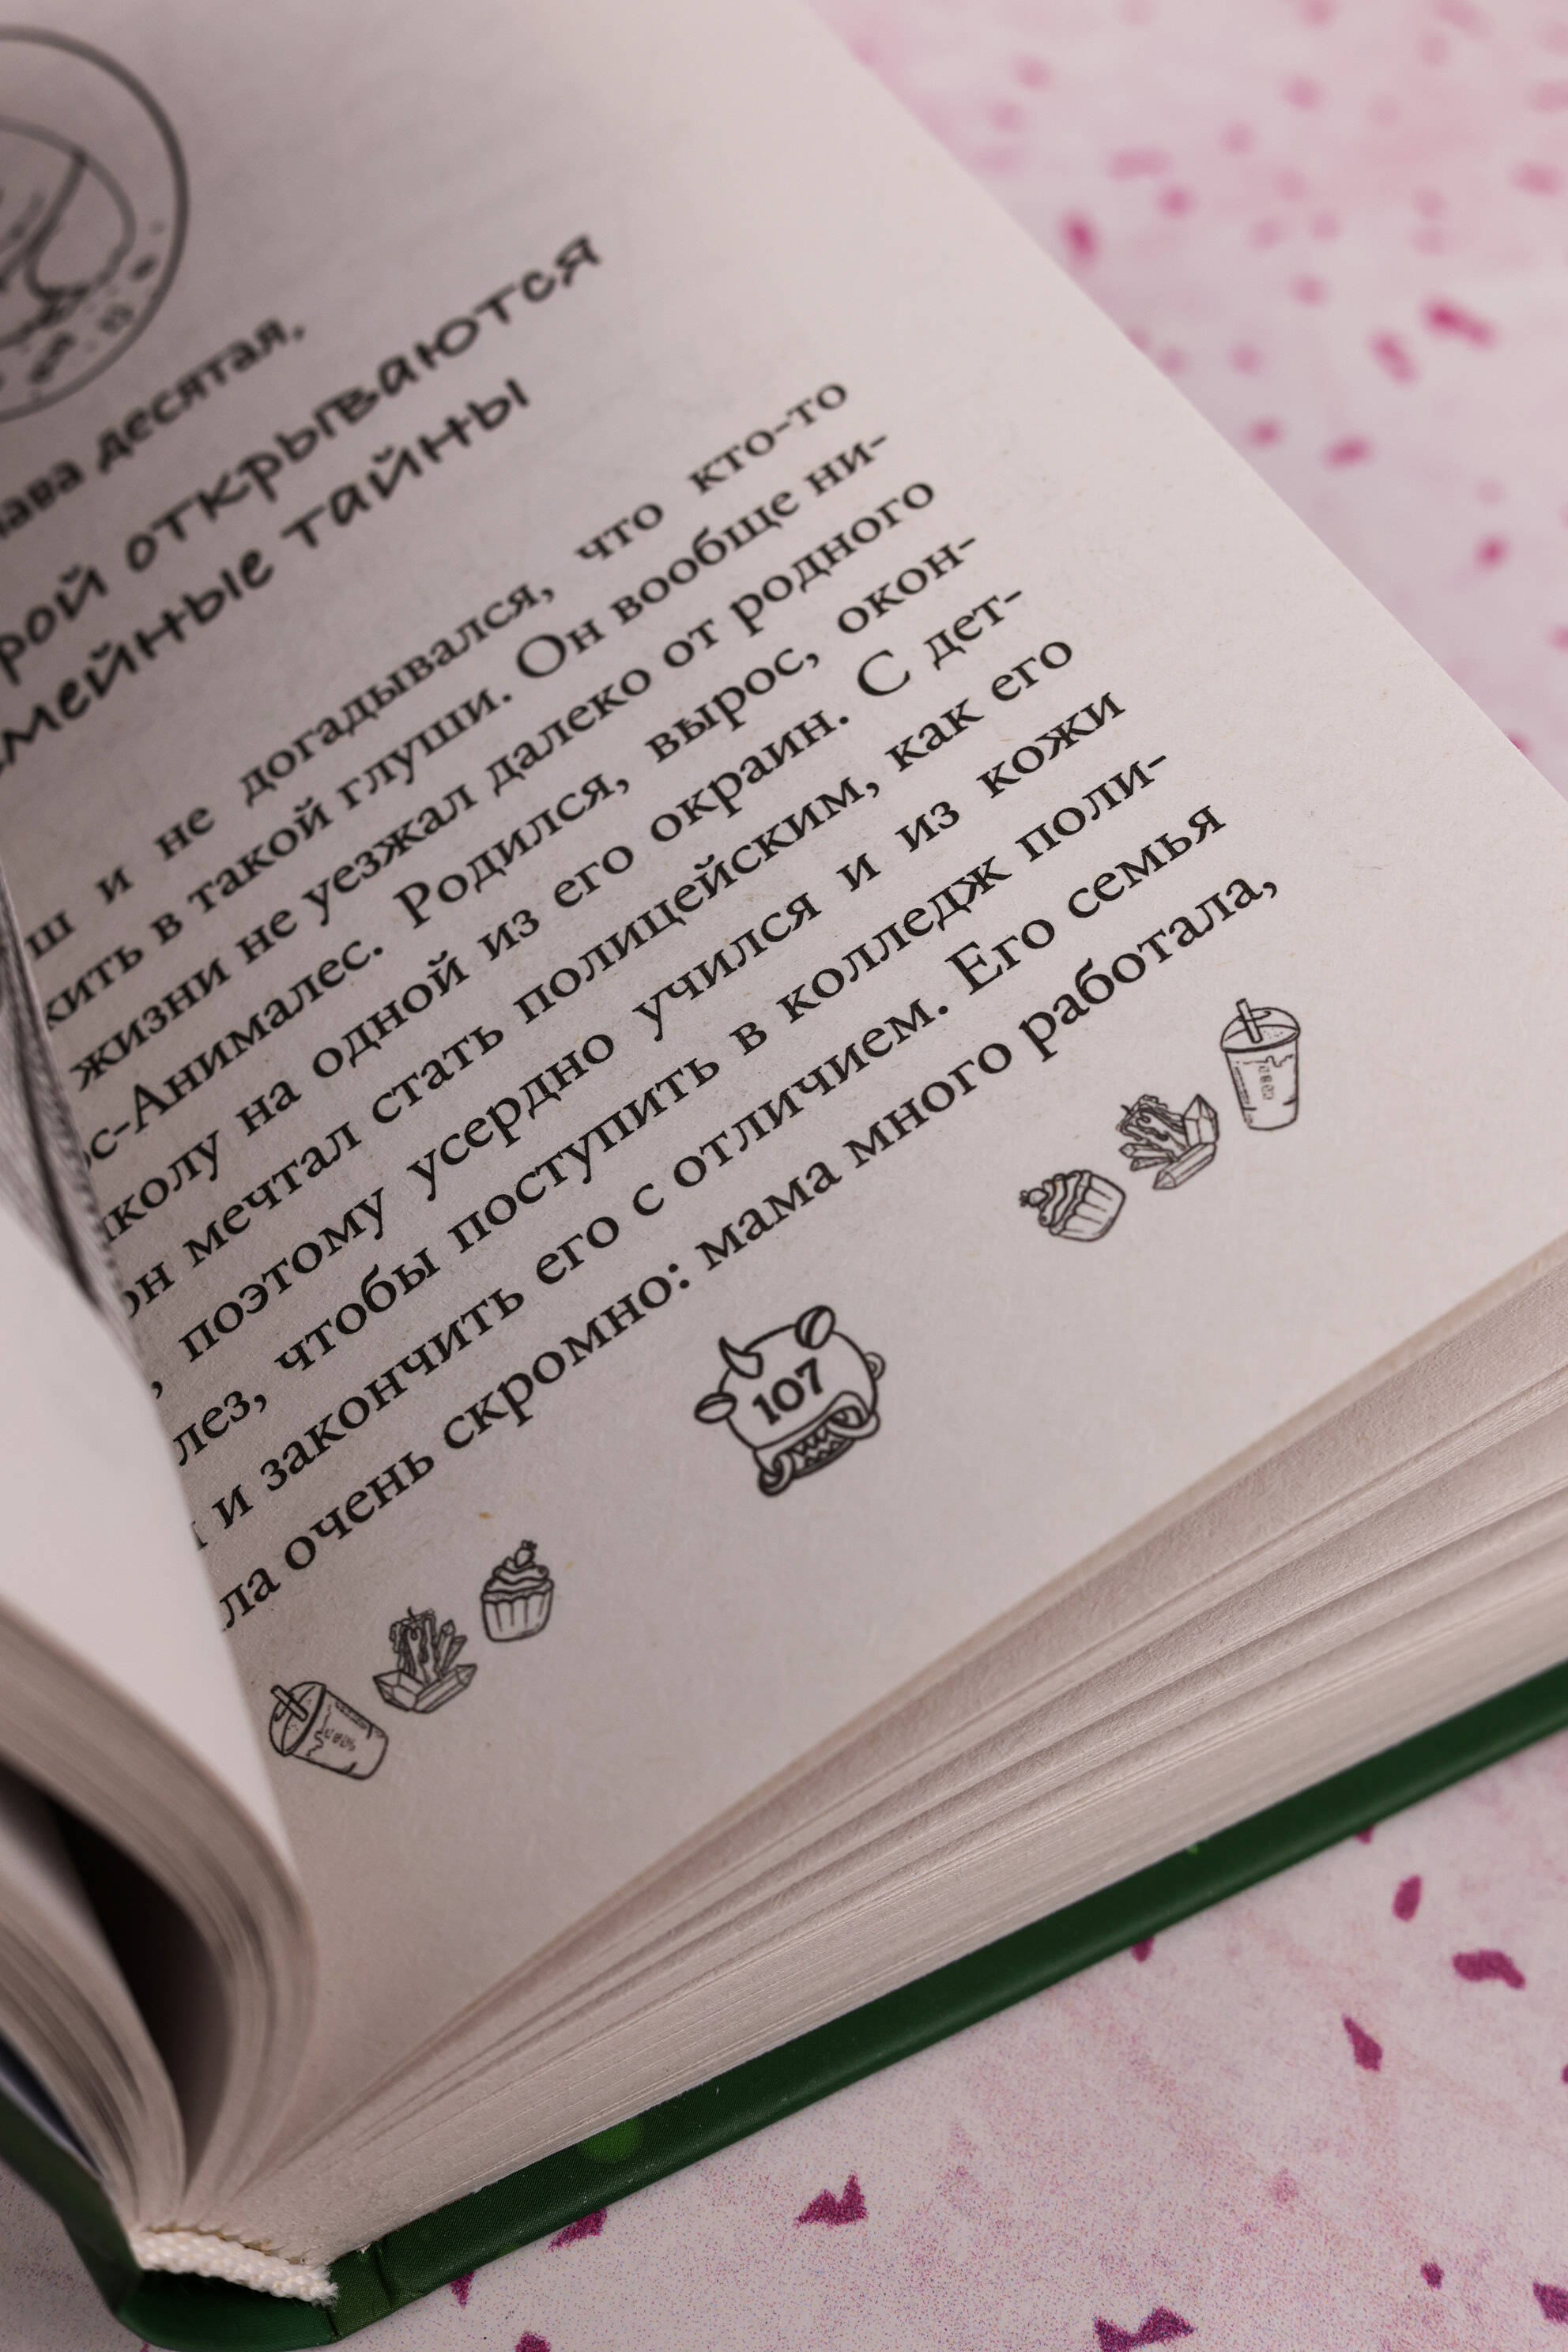 десятая,
открываются
тайны
и не догадывался, что кто-то
в такой глуши. Он вообще ни-
жизни не уезжал далеко от родного
Родился, вырос, окон-
на одной из его окраин. С дет-
мечтал стать полицейским, как его
, поэтому усердно учился и из кожи
лез, чтобы поступить в колледж поли-
и закончить его с отличием. Его семья
очень скромно: мама много работала,
107